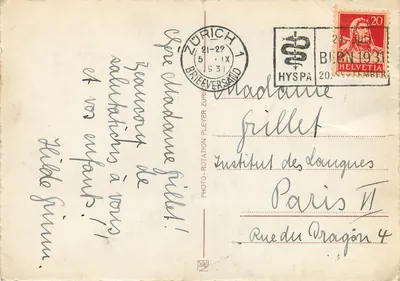 Chère Madame Grillet!
Beaucoup de
salutations à vous
et vos enfants!
Hilde Grimm.
ZÜRICH 1
21-22
5. IX
1931
BRIEFVERSAND
HYSPA
BERN 1931
20. SEPTEMBER
20
HELVETIA
PHOTO-ROTATION PLEYER ZÜRICH
Madame
Grillet
Institut des Langues
Paris VI
Rue du Dragon 4